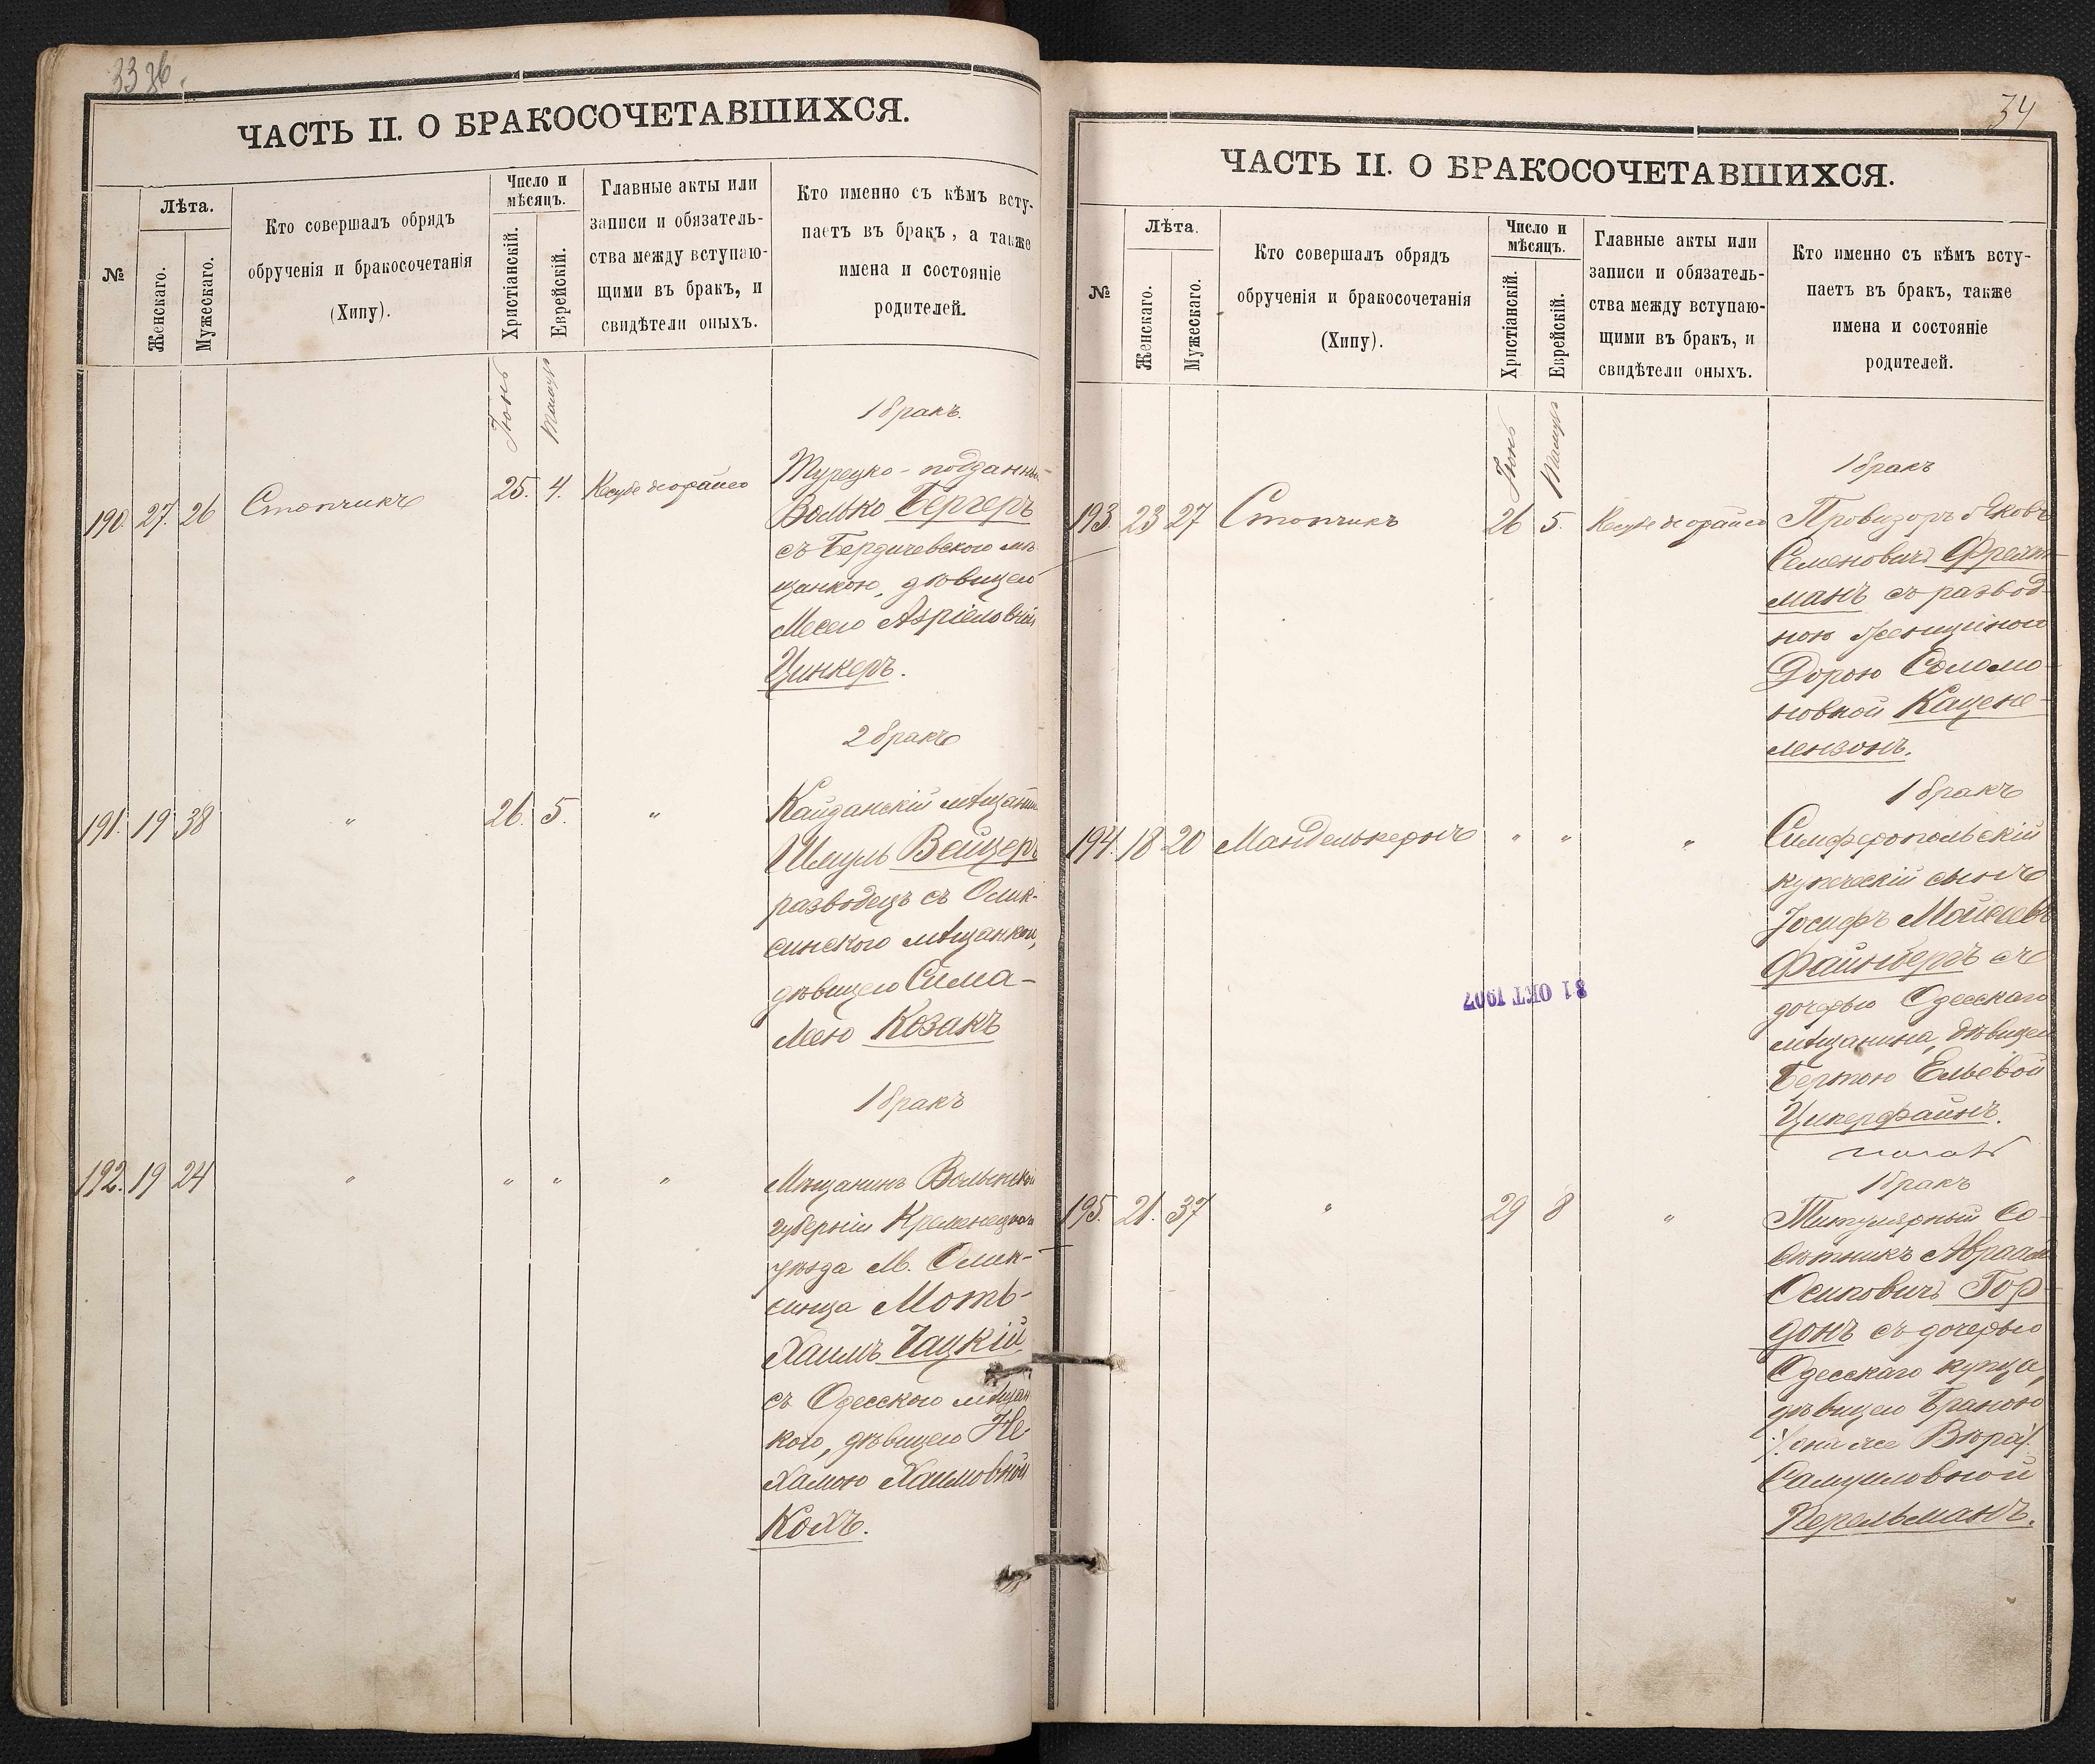 33 об.
ЧАСТЬ II. О БРАКОСОЧЕТАВШИХСЯ.
№
Лѣта.
Женскаго.
Мужескаго.
Кто совершалъ обрядъ
обрученія и бракосочетанія
(Хипу).
Число и
мѣсяцъ.
Христіанскій.
Еврейскій.
Главные акты или
записи и обязатель-
ства между вступаю-
щими въ бракъ, и
свидѣтели оныхъ.
Кто именно съ кѣмъ всту-
паетъ въ бракъ, а также
имена и состояніе
родителей.
Іюнь
Тамузъ
1 бракъ.
190. 27. 26 Стопчикъ 25. 4.
Турецко-подданный
Волько Бергеръ
съ Бердичевскою мѣ-
щанкою, дѣвицею
Месею Азріеловной
Цинкеръ.
2 бракъ
191. 19 38 " 26. 5. "
Кайданскій мѣщанинъ
Шмуль Вейцеръ
разводецъ съ Олик-
синскою мѣщанкою,
дѣвицею Сима-
Лею Козакъ
1 бракъ
192. 19 24 " " " "
Мѣщанинъ Волынской
губерніи Кременецкаго
уѣзда М. Олек-
синца Моть-
Хаимъ Чацкій
съ Одесскою мѣщан
кою, дѣвицею Не
хамою Хаимовной
Кохъ.
34
ЧАСТЬ II. О БРАКОСОЧЕТАВШИХСЯ.
№
Лѣта.
Женскаго.
Мужескаго.
Кто совершалъ обрядъ
обрученія и бракосочетанія
(Хипу).
Число и
мѣсяцъ.
Христіанскій.
Еврейскій.
Главные акты или
записи и обязатель-
ства между вступаю-
щими въ бракъ, и
свидѣтели оныхъ.
Кто именно съ кѣмъ всту-
паетъ въ бракъ, также
имена и состояніе
родителей.
Іюнь
Тамузъ
1 бракъ
193. 23 27 Стопчикъ 26 5.
Провизоръ Яковъ
Семеновичъ
манъ съ развод-
ною женщиною
Дорою Соломо-
новной Кацене-
ленсонъ.
1 бракъ
194. 18 20 Манделькернъ " " "
Симферопольскій
купеческій сынъ
Іосифъ
Файнбергъ съ
дочерью Одесскаго
мѣщанина, дѣвицею
Бертою Ельевой
Циперфайнъ.
31 ОКТ 1907
1 бракъ
195. 21. 37 " 29 8 "
Титулярный Со-
вѣтникъ Авраамъ
Осиповичъ Гор-
донъ съ дочерью
Одесскаго купца,
дѣвицею Браною
/она же Вѣра/.
Самуиловной
Перельманъ.